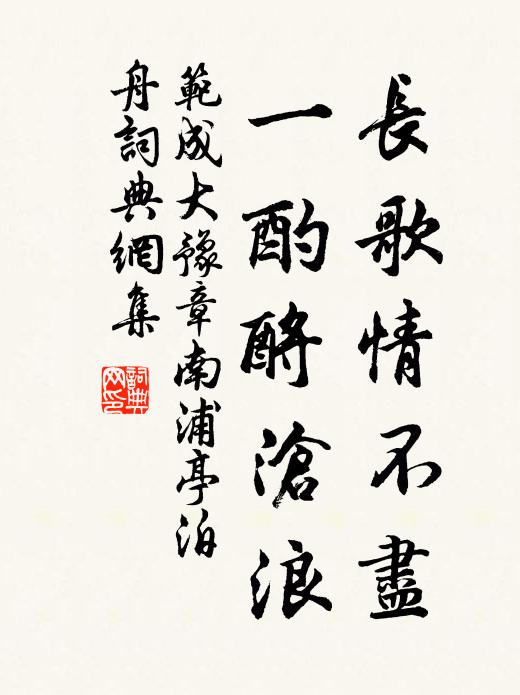 長歌情不盡
一酌酹滄浪
範成大豫章南浦亭泊
舟詞典網集
詞典
网印